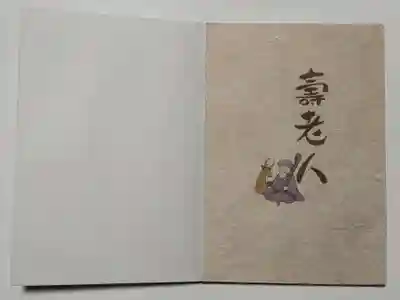 壽老人